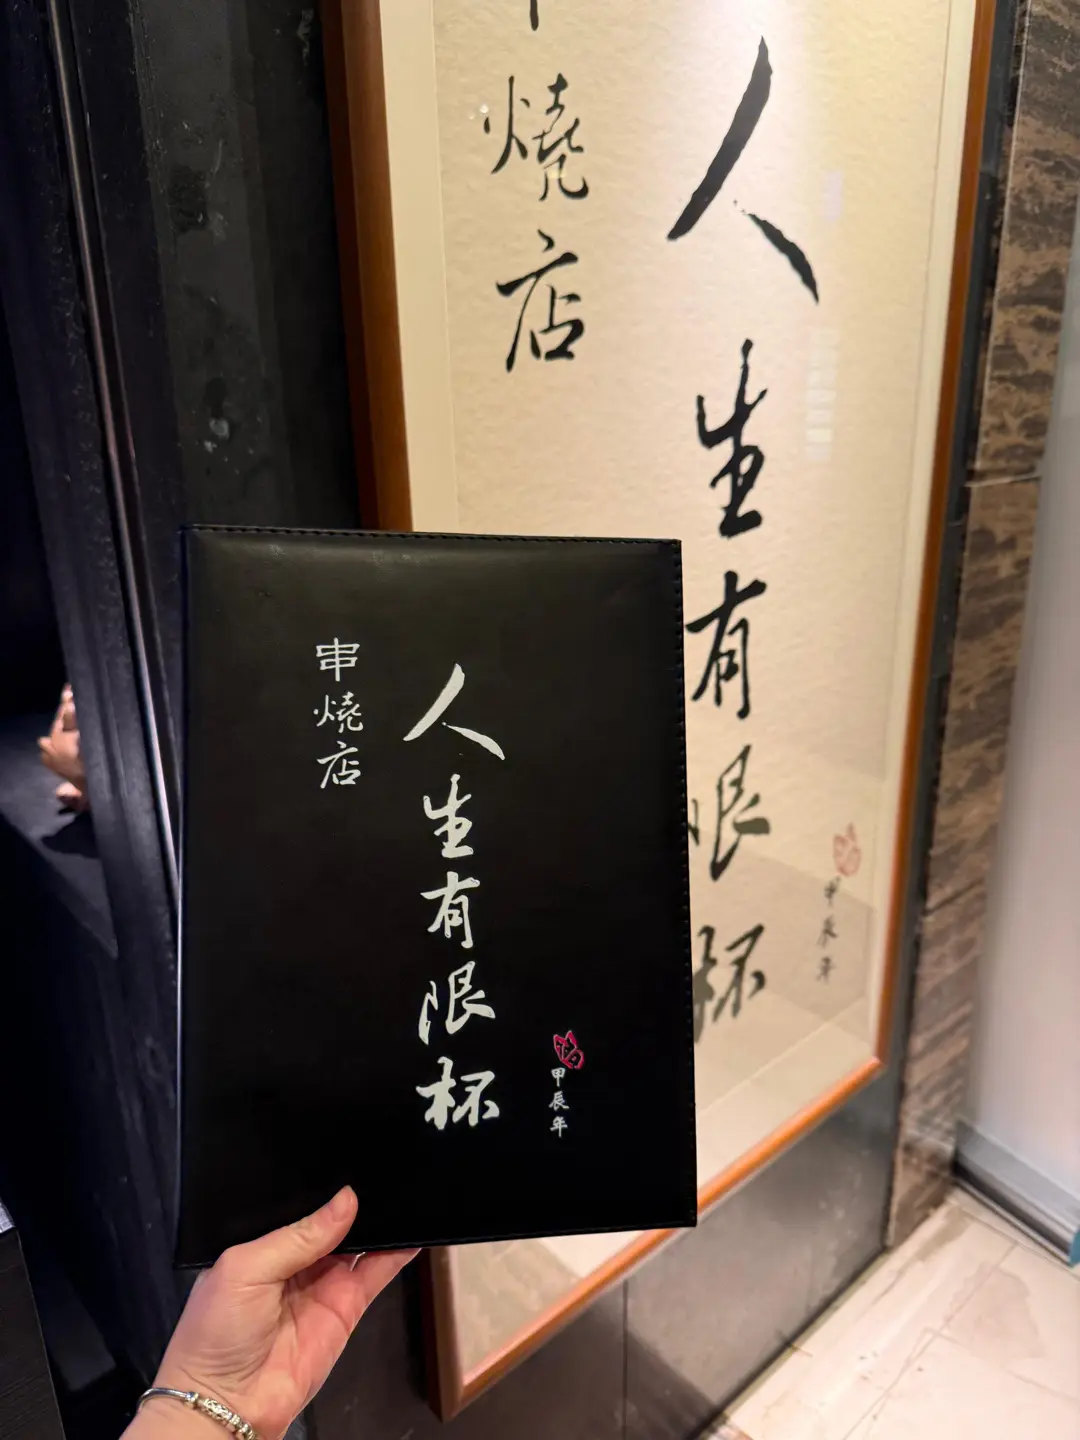 人生有限杯
串燒店
甲辰年
人生有限杯
燒店
甲辰年